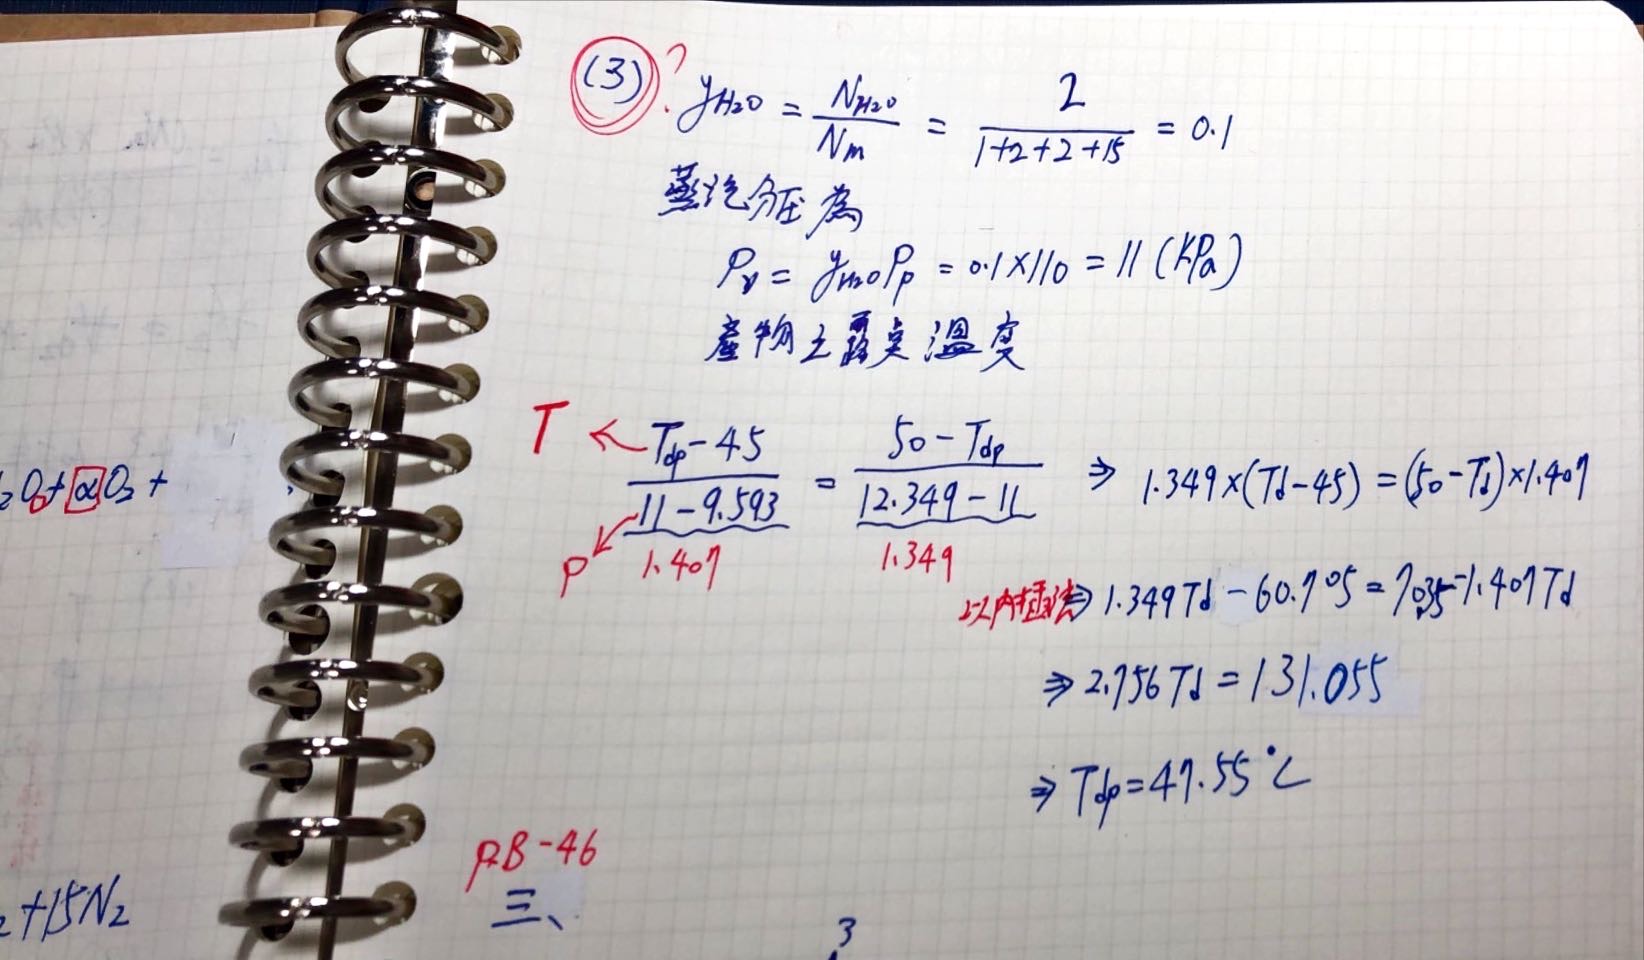 (3)? yH₂O = NH₂O / Nm = 2 / (1+2+2+15) = 0.1
蒸汽分压為
Pv = yH₂O Pp = 0.1×110 = 11 (KPa)
產物之露点溫度
T ← (Tdp-45) / (11-9.593) = (50-Tdp) / (12.349-11) ⇒ 1.349×(Td-45) = (50-Td)×1.407
P 1.407 1.349
以內插法 ⇒ 1.349Td - 60.705 = 70.35-1.407Td
⇒ 2.756Td = 131.055
⇒ Tdp = 47.55°C
P.B-46
三、
3
₂O+αO₂+
₂+15N₂